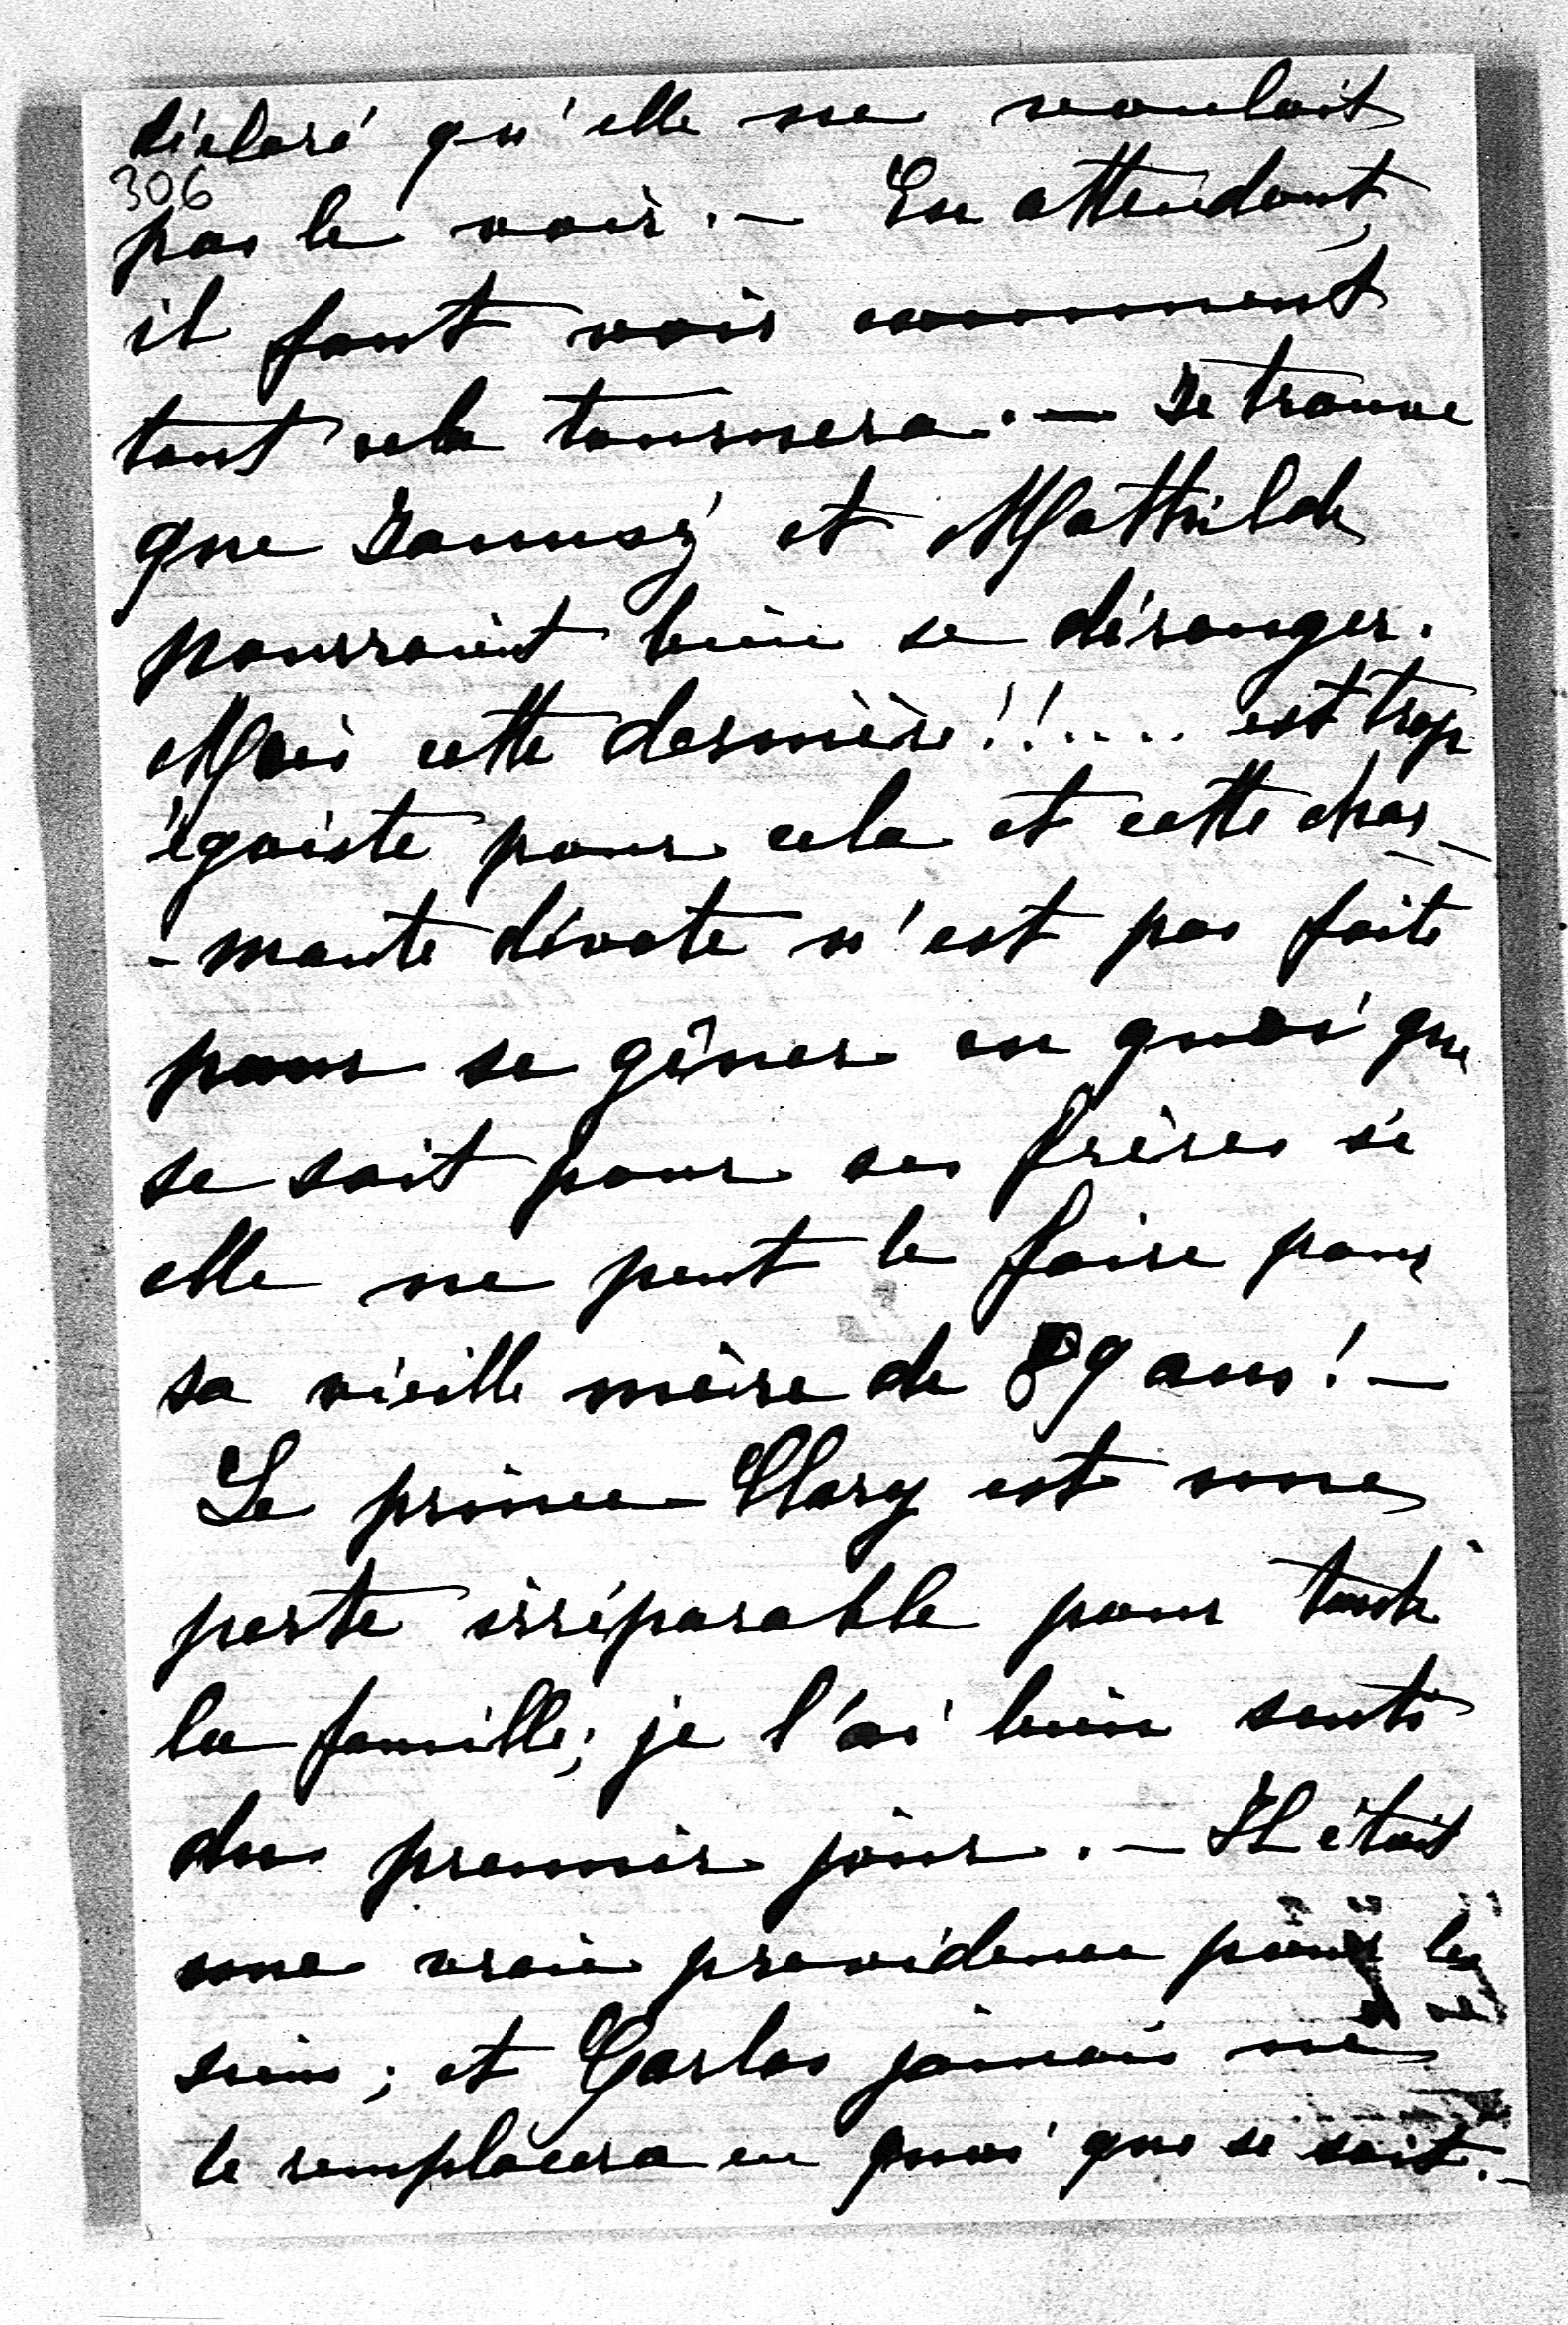 déclaré qu'elle ne voulait
306
pas le voir. — En attendant,
il faut voir comment
tout cela tournera. — Je trouve
que Janusz et Mathilde
pourraient bien se déranger.
Mais cette dernière!!.... est trop
égoiste pour cela et cette char-
-mante dévote n'est pas faite
pour se gêner en quoi que
se soit pour ses frères si
elle ne peut le faire pour
sa vieille mère de 89 ans! —
Le prince Clary est une
perte irréparable pour toute
la famille; je l'ai bien senti
du premier jour. — Il était
une vraie providence pour les
siens; et Carlos jamais ne
le remplacera en quoi que se soit. —